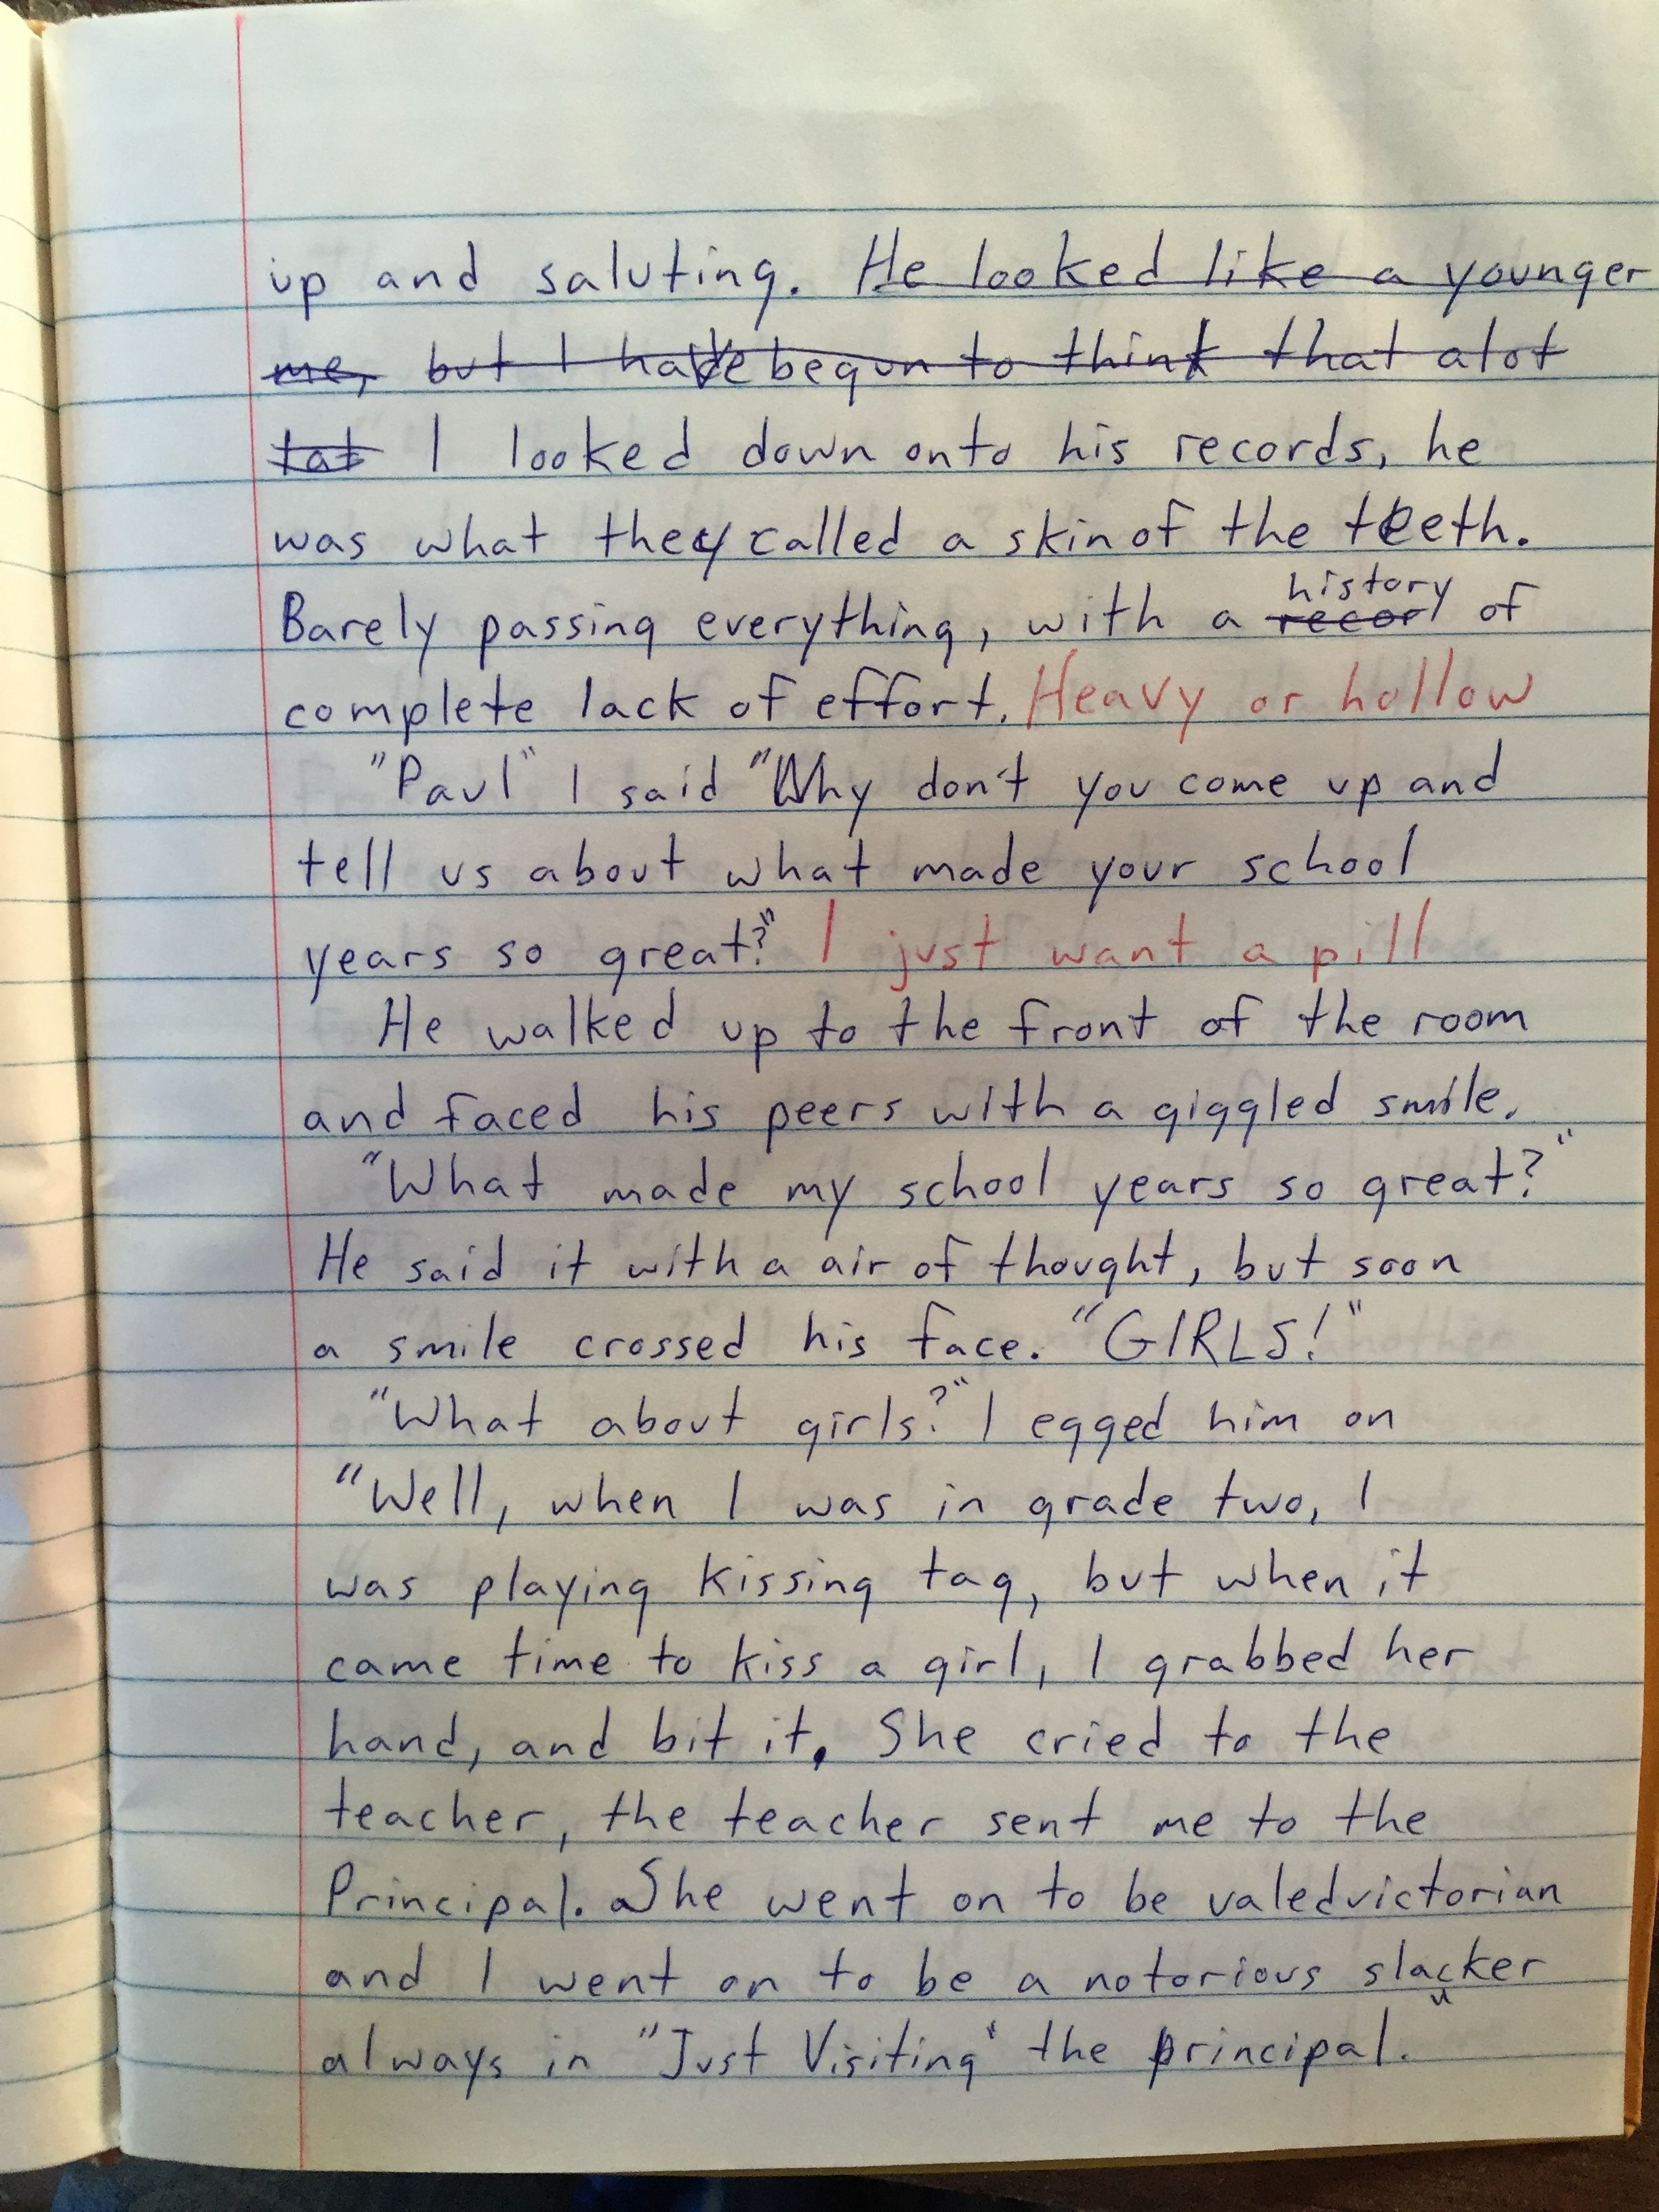 up and saluting. He looked like a younger
me, but I have begun to think that alot
tat I looked down onto his records, he
was what they called a skin of the teeth.
history
Barely passing everything, with a recor of
complete lack of effort. Heavy or hollow
"Paul" I said "Why don't you come up and
tell us about what made your school
years so great?" I just want a pill
He walked up to the front of the room
and faced his peers with a giggled smile.
"What made my school years so great?"
He said it with a air of thought, but soon
a smile crossed his face. "GIRLS!"
"What about girls?" I egged him on
"Well, when I was in grade two, I
was playing kissing tag, but when it
came time to kiss a girl, I grabbed her
hand, and bit it. She cried to the
teacher, the teacher sent me to the
Principal. She went on to be valedvictorian
and I went on to be a notorious slacker
always in "Just Visiting" the principal."